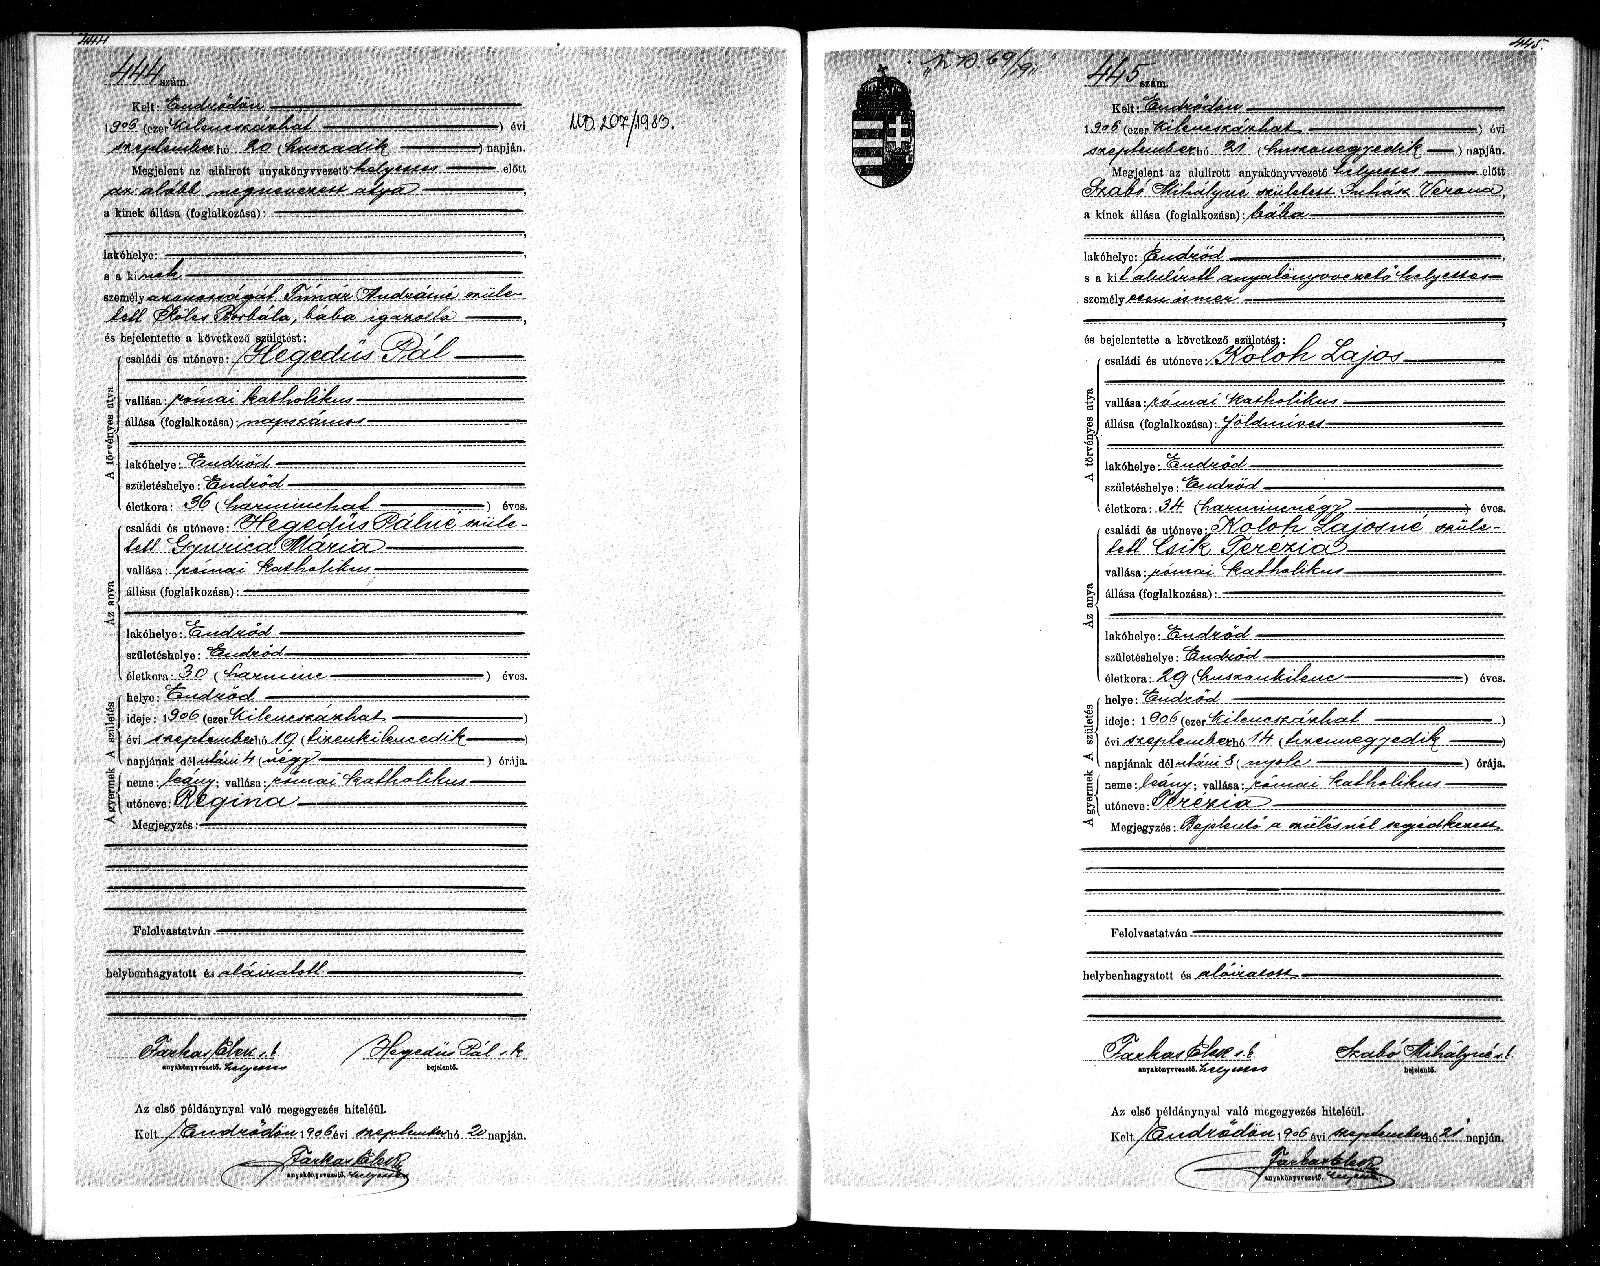 444
444 szám.
Kelt: Endrődön
1906 (ezer kilencszázhat) évi
szeptember hó 20 (huszadik) napján.
Megjelent az alulirott anyakönyvvezető helyettes előtt
az alább megnevezett atya
a kinek állása (foglalkozása):
lakóhelye:
s a kinek
személyazonosságát Timár Andrásné szüle-
tett Köles Borbála, bába igazolta,
és bejelentette a következő születést:
A törvényes atya
családi és utóneve: Hegedüs Pál
vallása: római katholikus
állása (foglalkozása): napszámos
lakóhelye: Endrőd
születéshelye: Endrőd
életkora: 36 (harminchat) éves.
Az anya
családi és utóneve: Hegedüs Pálné szüle-
tett Gyurica Mária
vallása: római katholikus
állása (foglalkozása):
lakóhelye: Endrőd
születéshelye: Endrőd
életkora: 30 (harminc) éves.
A születés
helye: Endrőd
ideje: 1906 (ezer kilencszázhat)
évi szeptember hó 19 (tizenkilencedik)
napjának délutáni 4 (négy) órája.
A gyermek
neme: leány; vallása: római katholikus
utóneve: Regina
Megjegyzés:
Felolvastatván
helybenhagyatott és aláiratott
Farkas Elek s. k. Hegedüs Pál s. k.
anyakönyvvezető. helyettes bejelentő.
Az első példánynyal való megegyezés hiteléül.
Kelt Endrődön 1906 évi szeptember hó 20 napján.
Farkas Elek
anyakönyvvezető. helyettes
MD 207/1983.
445.
445 szám.
Kelt: Endrődön
1906 (ezer kilencszázhat) évi
szeptember hó 21 (huszonegyedik) napján.
Megjelent az alulirott anyakönyvvezető helyettes előtt
Szabó Mihályné született Juhász Verona,
a kinek állása (foglalkozása): bába
lakóhelye: Endrőd
s a kit alulirott anyakönyvvezető helyettes
személyesen ismer
és bejelentette a következő születést:
A törvényes atya
családi és utóneve: Koloh Lajos
vallása: római katholikus
állása (foglalkozása): földmíves
lakóhelye: Endrőd
születéshelye: Endrőd
életkora: 34 (harmincnégy) éves.
Az anya
családi és utóneve: Koloh Lajosné szüle-
tett Csik Terézia
vallása: római katholikus
állása (foglalkozása):
lakóhelye: Endrőd
születéshelye: Endrőd
életkora: 29 (huszonkilenc) éves.
A születés
helye: Endrőd
ideje: 1906 (ezer kilencszázhat)
évi szeptember hó 14 (tizennegyedik)
napjának délutáni 8 (nyolc) órája.
A gyermek
neme: leány; vallása: római katholikus
utóneve: Terézia
Megjegyzés: Bejelentő a szülésnél segédkezett.
Felolvastatván
helybenhagyatott és aláiratott
Farkas Elek s. k. Szabó Mihályné s. k.
anyakönyvvezető. helyettes bejelentő.
Az első példánynyal való megegyezés hiteléül.
Kelt Endrődön 1906 évi szeptember hó 21 napján.
Farkas Elek
anyakönyvvezető. helyettes